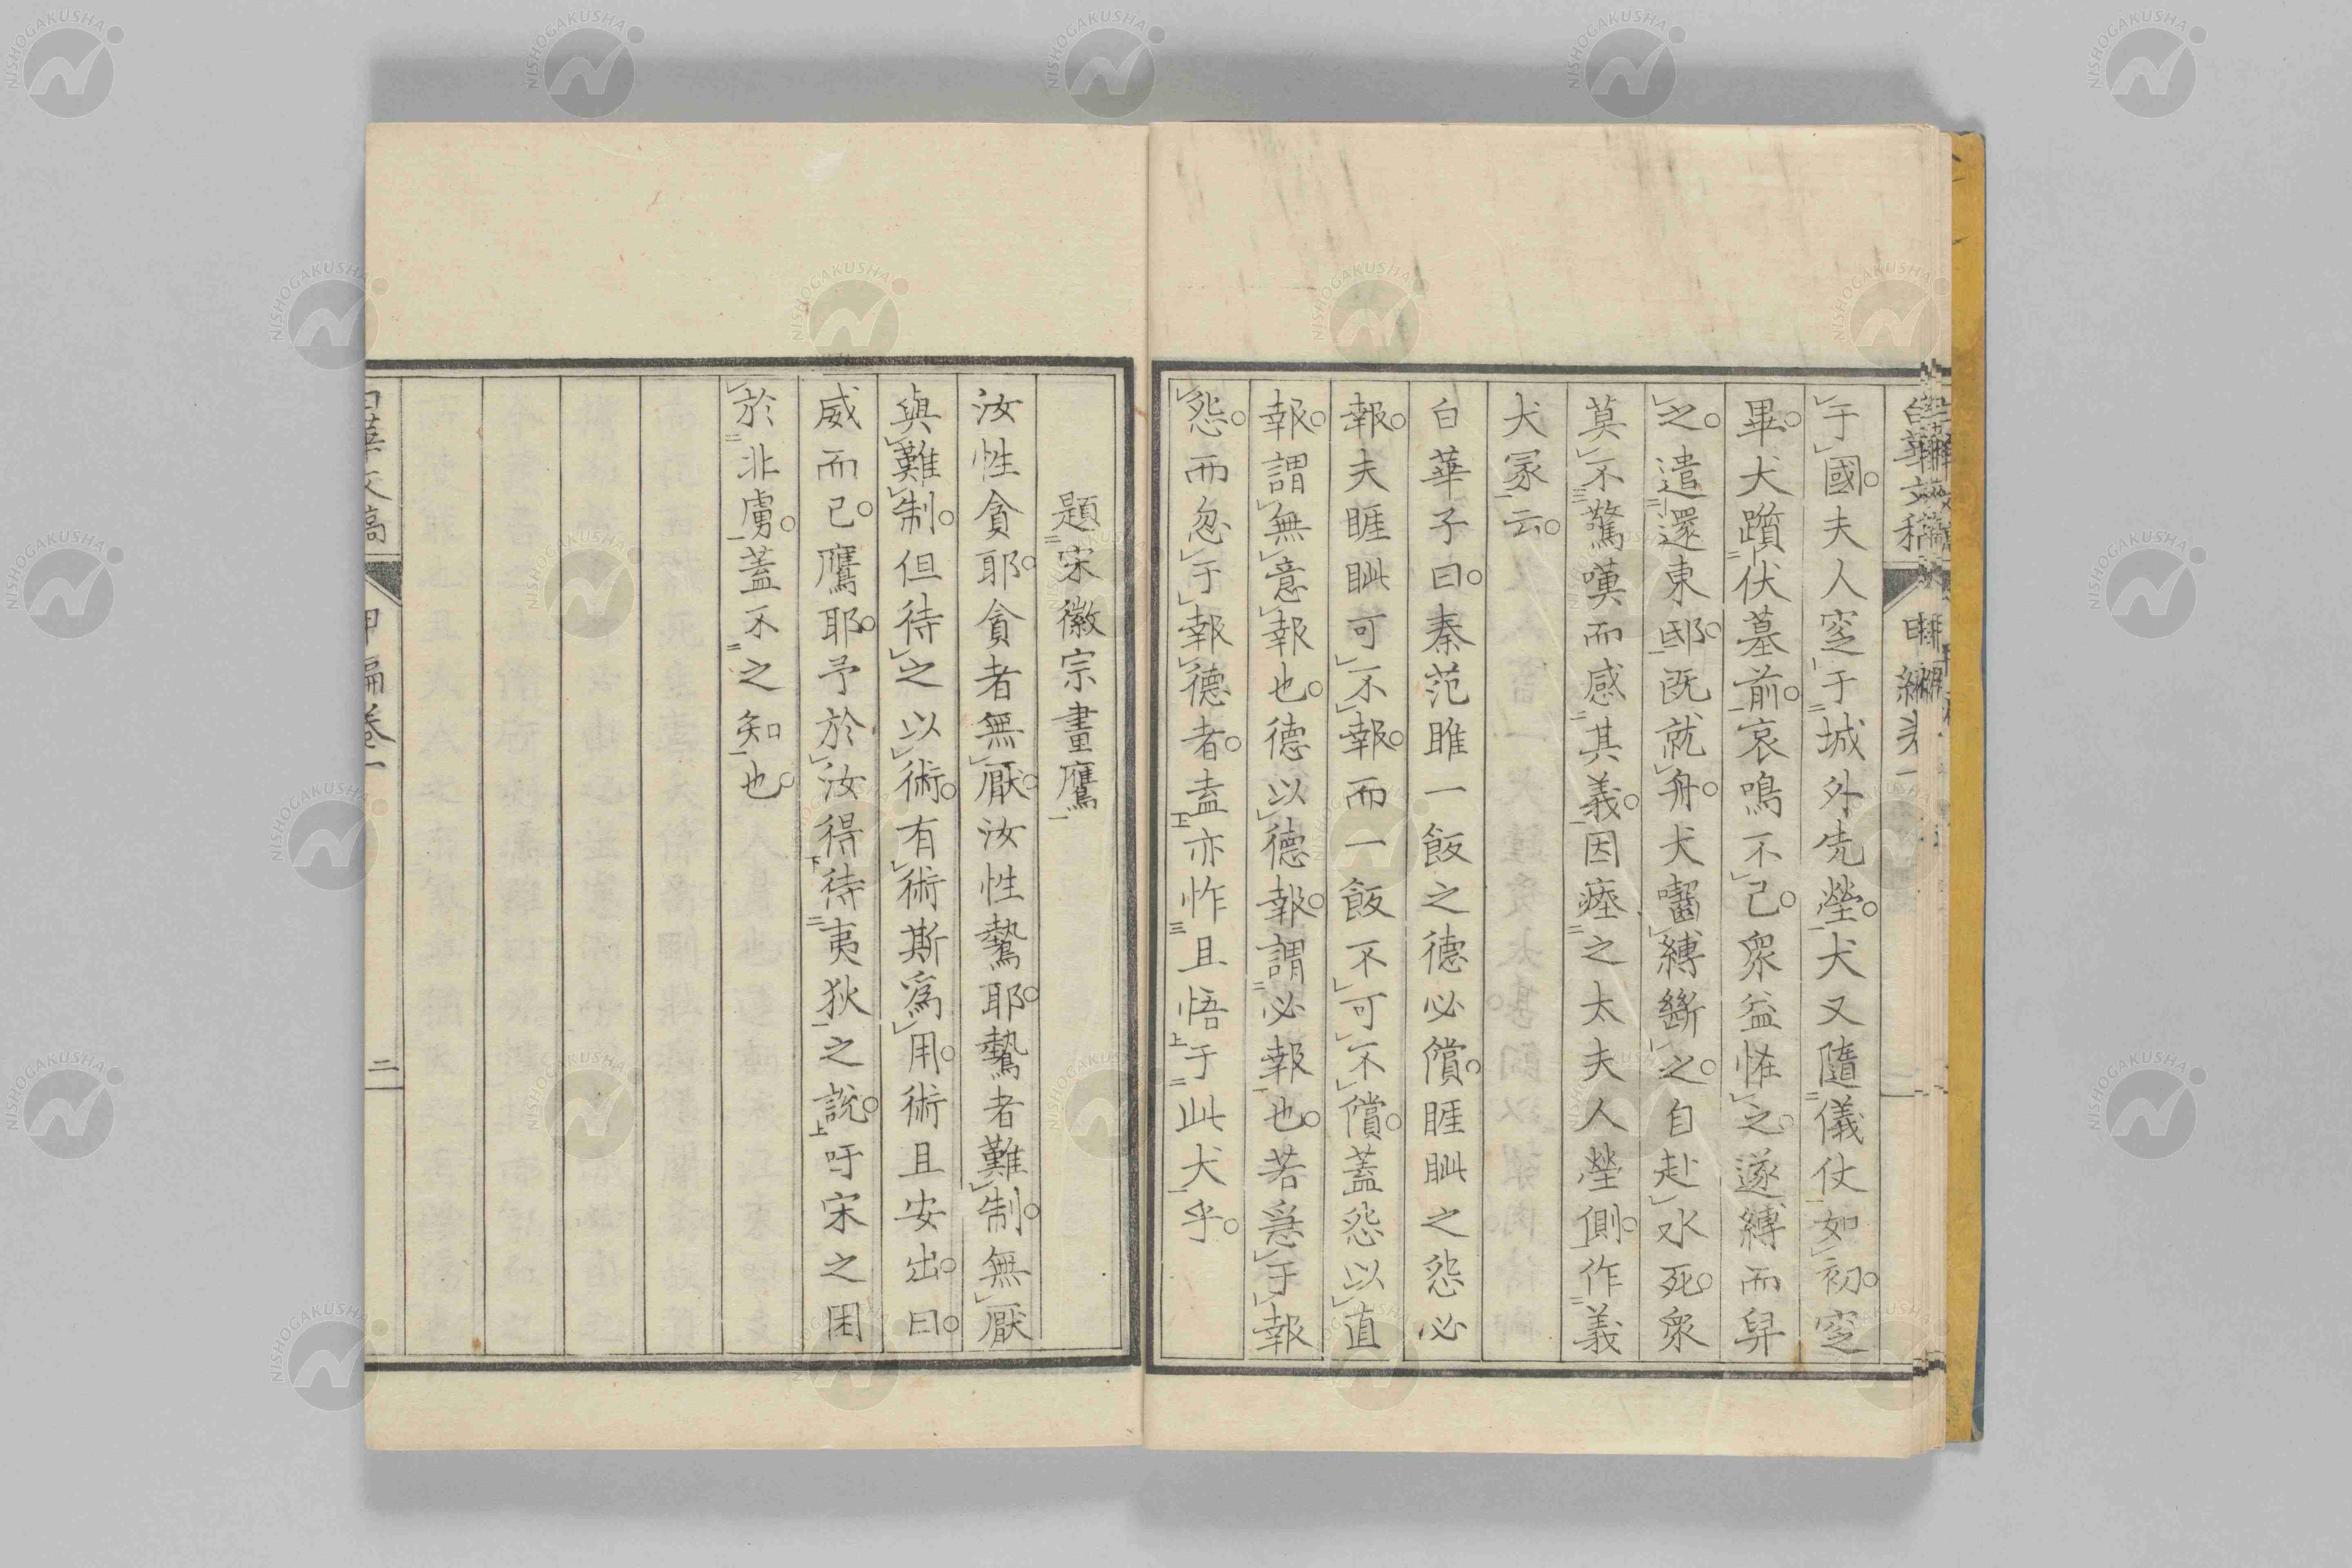 于國。夫人窆于城外先塋。犬又隨儀仗如初。窆
畢。犬躓伏墓前。哀鳴不已。衆益怪之。遂縛而舁
之。遣還東邸。既就舟。犬囓縛斷之。自赴水死。衆
莫不驚嘆而感其義。因瘞之太夫人塋側。作義
犬冢云。
白華子曰。秦范雎一飯之德必償。睚眦之怨必
報。夫睚眦可不報。而一飯不可不償。蓋怨以直
報。謂無意報也。德以德報。謂必報也。若急于報
怨而忽于報德者。盍亦怍且悟于此犬乎。
題宋徽宗畫鷹
汝性貪耶。貪者無厭。汝性鷙耶。鷙者難制。無厭
與難制。但待之以術。有術斯爲用。術且安出。曰。
威而已。鷹耶。予於汝得待夷狄之説。吁宋之困
於北虜。蓋不之知也。
白華文稿 甲編卷一 二